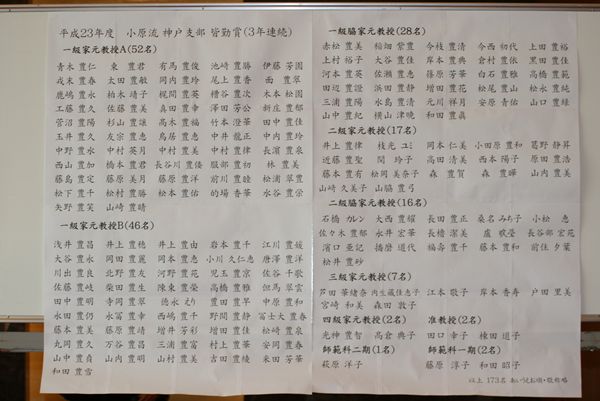 平成23年度 小原流 神戸支部 皆勤賞(3年連続)
一級家元教授A(52名)
青木 豊仁 東 豊君 有馬 豊俊 池崎 豊勝 伊藤 芳園
戎末 豊春 太田 豊敏 岡内 豊玲 尾上 豊香 面 豊翠
鹿嶋 豊水 柏木 靖子 梶間 豊英 糟谷 豊次 木本 松園
工藤 豊久 佐藤 豊美 真田 豊幸 澤田 芳公 新庄 豊郁
菅沼 豊陽 杉山 豊譲 高木 豊福 竹本 澄華 田中 豊佳
玉井 豊久 友宗 豊志 鳥居 豊恵 中井 龍正 中内 豊玲
中野 豊水 中村 英月 中村 豊美 中村 豊律 長濱 豊泉
西山 豊加 橋本 豊君 長谷川 豊倭 服部 豊初 林 豊美
藤島 豊定 藤原 美月 藤原 豊洋 前川 豊睦 松浦 翠豊
松下 豊千 松村 豊勝 松本 豊佑 的場 香華 水谷 豊栄
矢野 豊笑 山崎 豊晴
一級家元教授B(46名)
浅井 豊昌 井上 豊穂 井上 豊由 岩本 豊千 江川 豊媛
大谷 豊永 岡田 豊麗 岡本 豊恵 小川 久仁恵 唐澤 豊洋
川出 豊良 北野 豊友 河野 豊苑 児玉 豊京 佐谷 千歌
佐藤 豊岐 柴田 豊生 陳東 豊榮 高橋 豊雅 但馬 翠雲
田中 豊明 寺岡 豊翠 徳永 えり 豊田 豊早 中原 豊和
永田 豊仍 永冨 豊幸 西嶋 豊千 野間 豊静 冨士大 豊春
藤本 豊美 藤原 豊靖 増井 芳彩 増田 豊佳 松崎 豊泉
丸岡 豊久 万谷 豊昌 三浦 豊富 村上 豊華 安岡 豊春
山中 豊貞 山内 豊明 山村 豊美 吉田 豊綾 来田 芳華
和田 豊雪
一級脇家元教授(28名)
赤松 豊美 稲畑 紫豊 今枝 豊清 今西 初代 上田 豊裕
上村 裕子 大谷 豊佳 岸本 豊典 倉村 豊依 黒田 豊佳
河本 豊英 佐瀬 豊恵 篠原 芳華 白石 豊雅 高橋 豊範
田辺 豊證 浜田 豊静 増田 豊花 松尾 豊山 松永 豊純
三浦 豊陽 水島 豊清 元川 祥月 安原 青佑 山口 豊緑
山中 豊紀 横山 津暁 和田 豊眞
二級脇家元教授(17名)
井上 豊律 枝光 ユミ 岡本 仁美 小田原 豊和 葛野 静昇
近藤 豊聖 関 玲子 高田 清美 西本 陽子 原田 豊浩
藤本 豊有 松岡 美奈子 森 豊賀 森 豊曄 山内 豊美
山崎 久美子 山脇 豊弓
二級脇家元教授(16名)
石橋 カレン 大西 豊耀 長田 豊正 桑名 みち子 小松 恵
佐々木 豊郁 永井 宏華 長檜 潔美 盧 畹瑩 長谷部 宏名
濱口 亜記 播磨 道代 福壽 豊千 藤本 豊和 前住 夕葉
松井 豊砂
三級家元教授(7名)
芦田 華緒奈 内生蔵佳恵子 江本 敬子 岸本 香寿 戸田 里美
宮崎 和美 森田 敦子
四級家元教授(2名) 准教授(2名)
光神 豊智 高倉 典子 田口 幸子 棟田 道子
師範科二期(1名) 師範科一期(2名)
萩原 洋子 藤原 淳子 和田 昭子
以上 173名 あいうえお順・敬称略